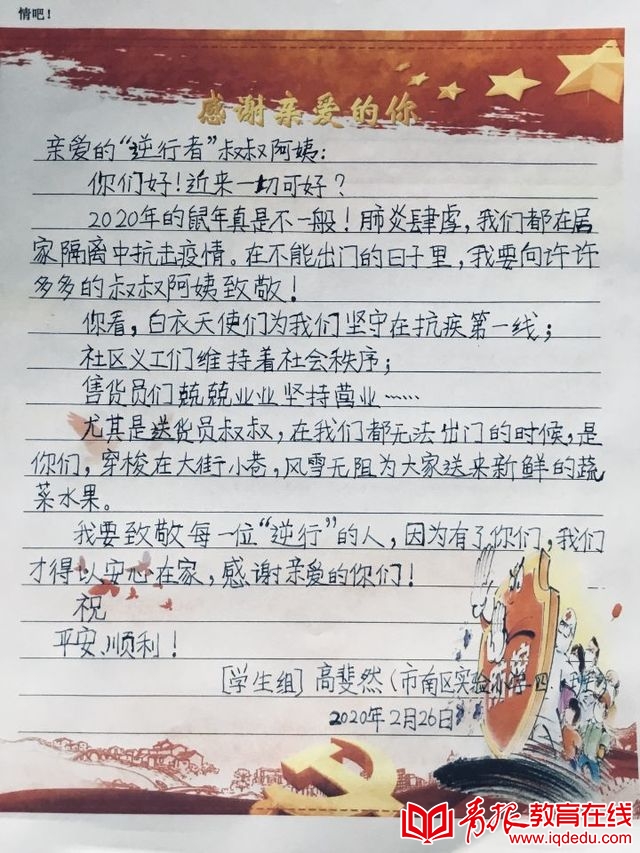 情吧！
感谢亲爱的你
亲爱的“逆行者”叔叔阿姨：
你们好！近来一切可好？
2020年的鼠年真是不一般！肺炎肆虐，我们都在居
家隔离中抗击疫情。在不能出门的日子里，我要向许许
多多的叔叔阿姨致敬！
你看，白衣天使们为我们坚守在抗疾第一线；
社区义工们维持着社会秩序；
售货员们兢兢业业坚持营业……
尤其是送货员叔叔，在我们都无法出门的时候，是
你们，穿梭在大街小巷，风雪无阻为大家送来新鲜的蔬
菜水果。
我要致敬每一位“逆行”的人，因为有了你们，我们
才得以安心在家，感谢亲爱的你们！
祝
平安、顺利！
[学生组] 高斐然（市南区实验小学四
2020年2月26日
青报教育在线
www.iqdedu.com